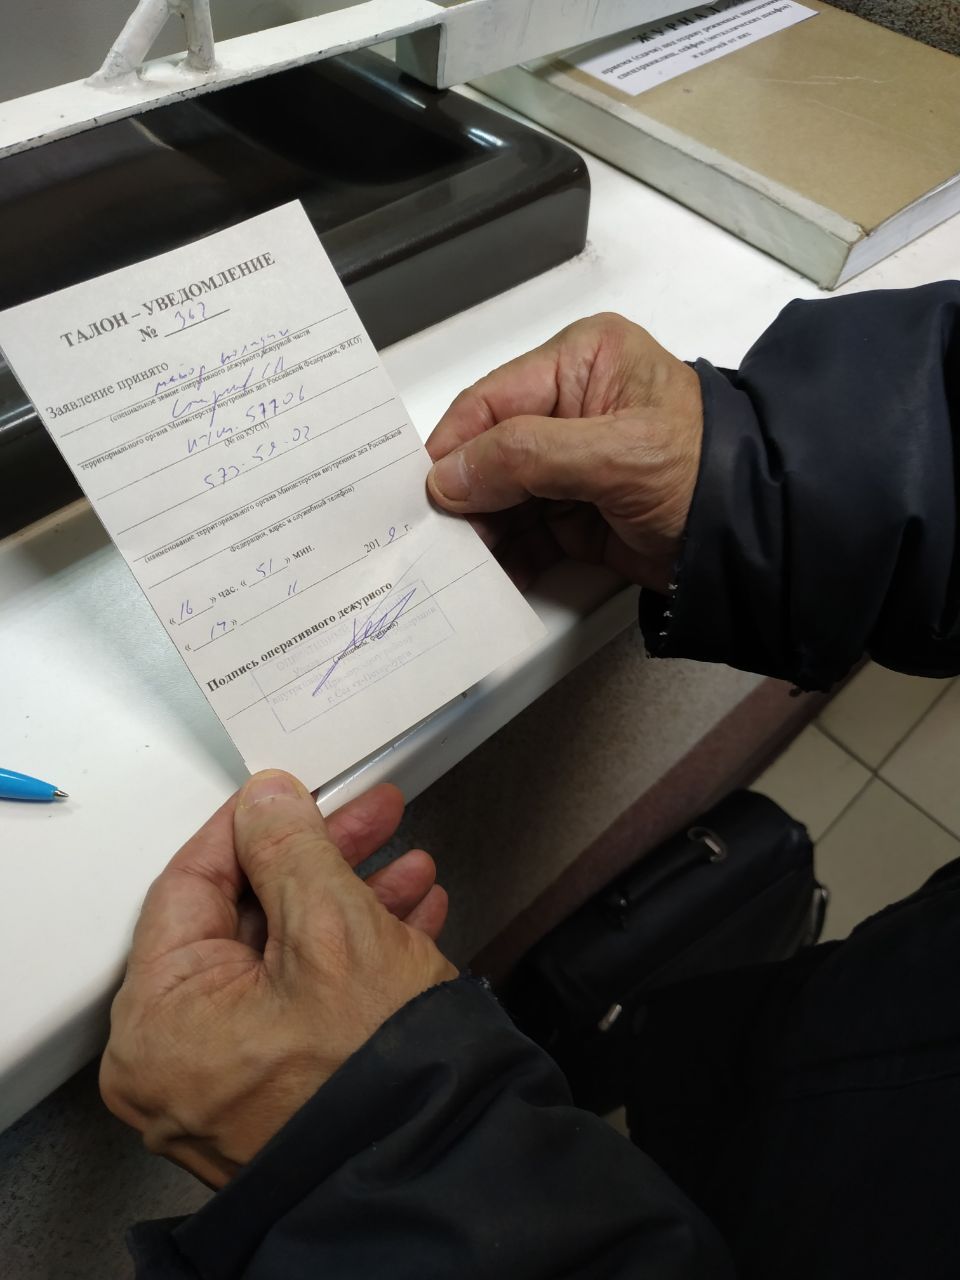 ЖУРНАЛ
приема (сдачи) под охрану режимных помещений,
спецхранилищ, сейфов (металлических шкафов)
и ключей от них
ТАЛОН – УВЕДОМЛЕНИЕ
№ 367
Заявление принято майор полиции
(специальное звание оперативного дежурного дежурной части
территориального органа Министерства внутренних дел Российской Федерации, Ф.И.О)
57706
(№ по КУСП)
573-59-02
(наименование территориального органа Министерства внутренних дел Российской
Федерации, адрес и служебный телефон)
«16» час. «51» мин.
«17» 11 2019 г.
Подпись оперативного дежурного
(инициалы, фамилия)